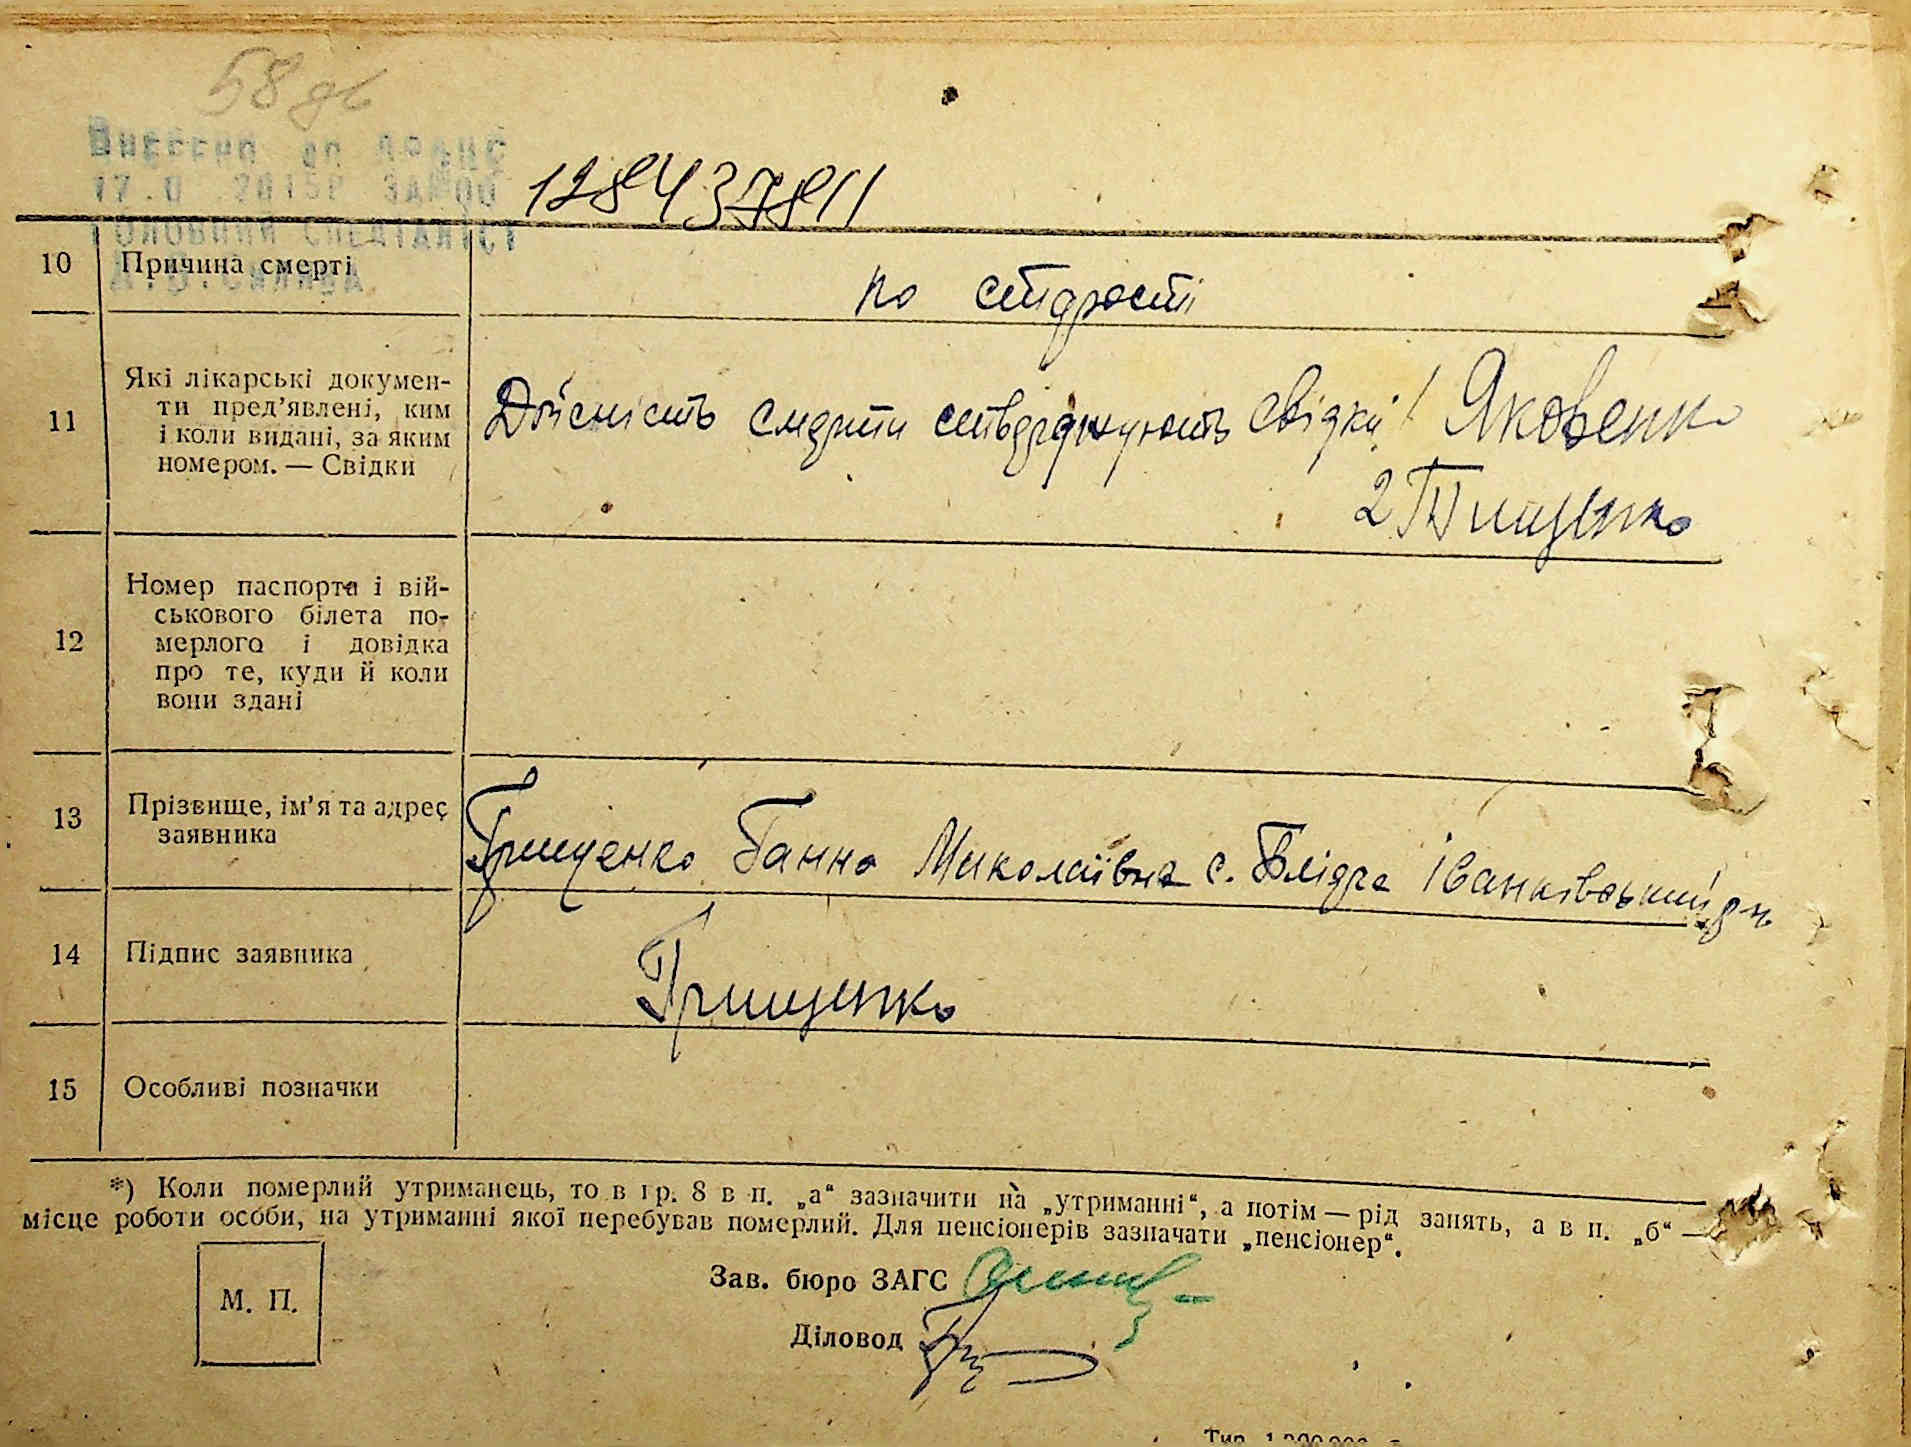 58
Внесено до
128437811
10 Причина смерті по старості
11 Які лікарські докумен-
ти пред’явлені, ким
і коли видані, за яким
номером. — Свідки
Дійсність смерти стверджують свідки 1 Яковенко
2 Тищенко
12 Номер паспорта і вій-
ськового білета по-
мерлого і довідка
про те, куди й коли
вони здані
13 Прізвище, ім’я та адрес
заявника
Грищенко Ганна Миколаївна с. Блідча Іванківський р-н
14 Підпис заявника Грищенко
15 Особливі позначки
*) Коли померлий утриманець, то в гр. 8 в п. „а“ зазначити на „утриманні“, а потім — рід занять, а в п. „б“ —
місце роботи особи, на утриманні якої перебував померлий. Для пенсіонерів зазначати „пенсіонер“.
Зав. бюро ЗАГС
М. П.
Діловод
Тир.